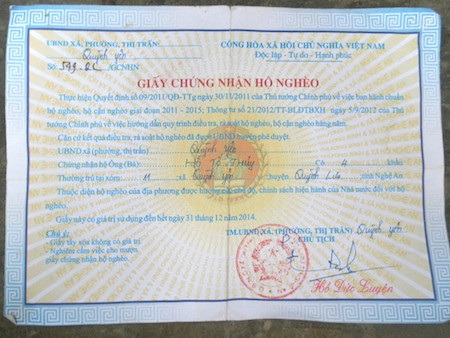 UBND XÃ, PHƯỜNG, THỊ TRẤN:
Quỳnh yên
Số: /GCNHN
CỘNG HÒA XÃ HỘI CHỦ NGHĨA VIỆT NAM
Độc lập - Tự do - Hạnh phúc
GIẤY CHỨNG NHẬN HỘ NGHÈO
Thực hiện Quyết định số 09/2011/QĐ-TTg ngày 30/11/2011 của Thủ tướng Chính phủ về việc ban hành chuẩn
hộ nghèo, hộ cận nghèo giai đoạn 2011 - 2015; Thông tư số 21/2012/TT-BLĐTBXH ngày 5/9/2012 của Thủ
tướng Chính phủ về việc hướng dẫn quy trình điều tra, rà soát hộ nghèo, hộ cận nghèo hàng năm.
Căn cứ kết quả điều tra, rà soát hộ nghèo đã được UBND huyện phê duyệt.
UBND xã (phường, thị trấn) Quỳnh Yên
Chứng nhận hộ Ông (Bà): Hồ Tô Thủy Có 4 khẩu
Thường trú tại xóm 11 xã Quỳnh yên huyện Quỳnh Lưu tỉnh Nghệ An
Thuộc diện hộ nghèo của địa phương được hưởng chế độ, chính sách hiện hành của Nhà nước đối với hộ
nghèo.
Giấy này có giá trị sử dụng đến hết ngày 31 tháng 12 năm 2014.
Chú ý:
- Giấy tẩy xóa không có giá trị
- Nghiêm cấm việc cho mượn
giấy chứng nhận hộ nghèo.
TM.UBND XÃ, (PHƯỜNG, THỊ TRẤN) Quỳnh yên
CHỦ TỊCH
Hồ Đức Luyện